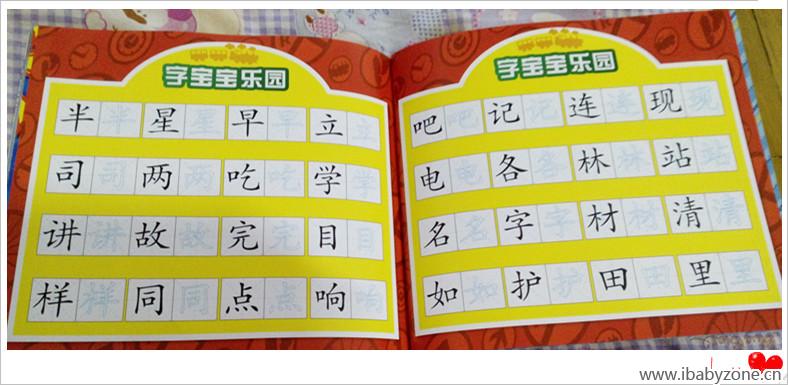 字宝宝乐园
半 半 星 星 早 早 立 立
司 司 两 两 吃 吃 学 学
讲 讲 故 故 完 完 目 目
样 样 同 同 点 点 响 响
字宝宝乐园
吧 吧 记 记 连 连 现 现
电 电 各 各 林 林 站 站
名 名 字 字 材 材 清 清
如 如 护 护 田 田 里 里
www.ibabyzone.cn